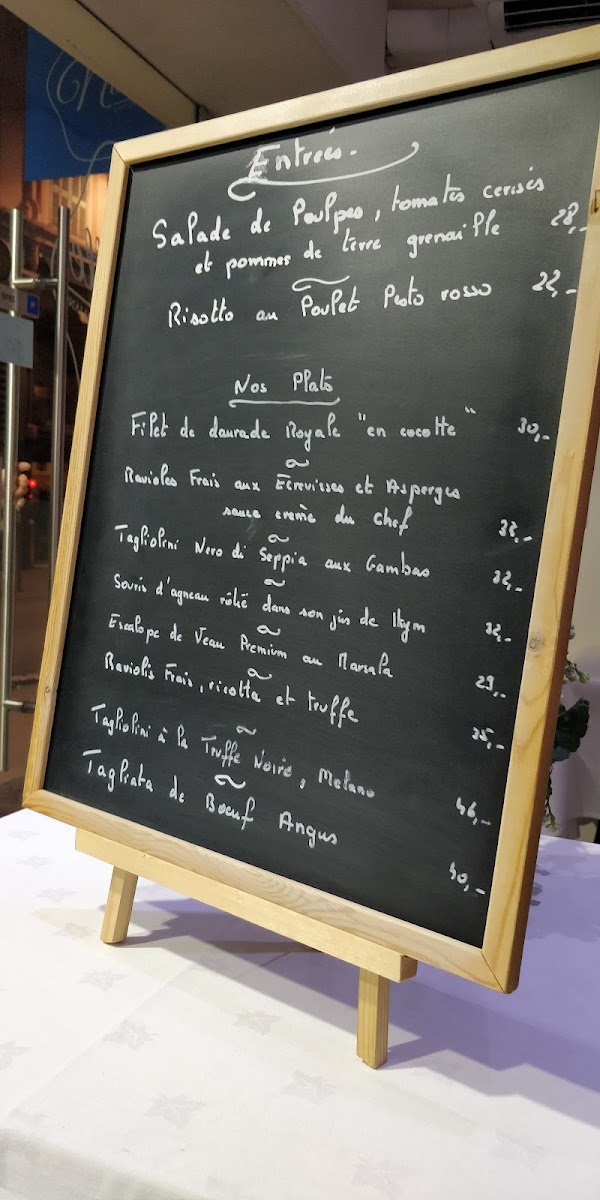 Entrées.
Salade de Poulpes, tomates cerises
et pommes de terre grenaille 28,-
~
Risotto au Poulet Pesto rosso 22,-
Nos Plats
Filet de daurade Royale "en cocotte" 30,-
~
Ravioles Frais aux Écrevisses et Asperges
sauce crème du chef 32,-
~
Tagliolini Nero di Seppia aux Gambas 32,-
~
Souris d'agneau rôtie dans son jus de thym 32,-
~
Escalope de Veau Premium au Marsala 29,-
~
Raviolis Frais, ricotta et truffe 35,-
~
Tagliolini à la Truffe Noire, Melano 46,-
~
Tagliata de Bœuf Angus 40,-